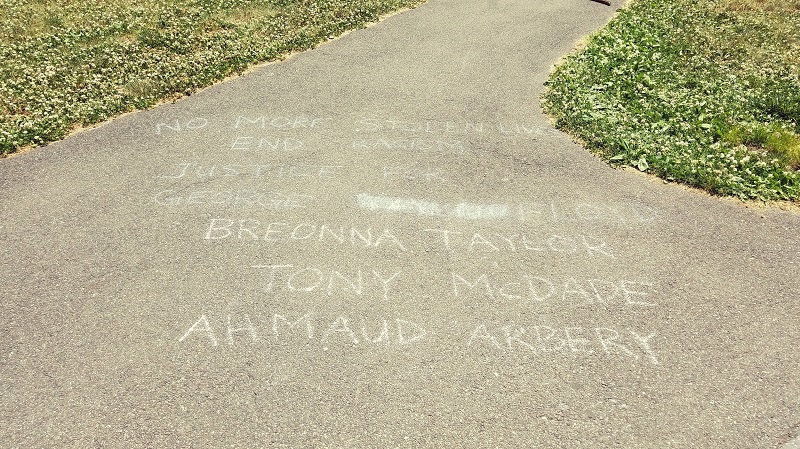 NO MORE STOLEN LIVES
END RACISM
JUSTICE FOR
GEORGE FLOYD
BREONNA TAYLOR
TONY McDADE
AHMAUD ARBERY